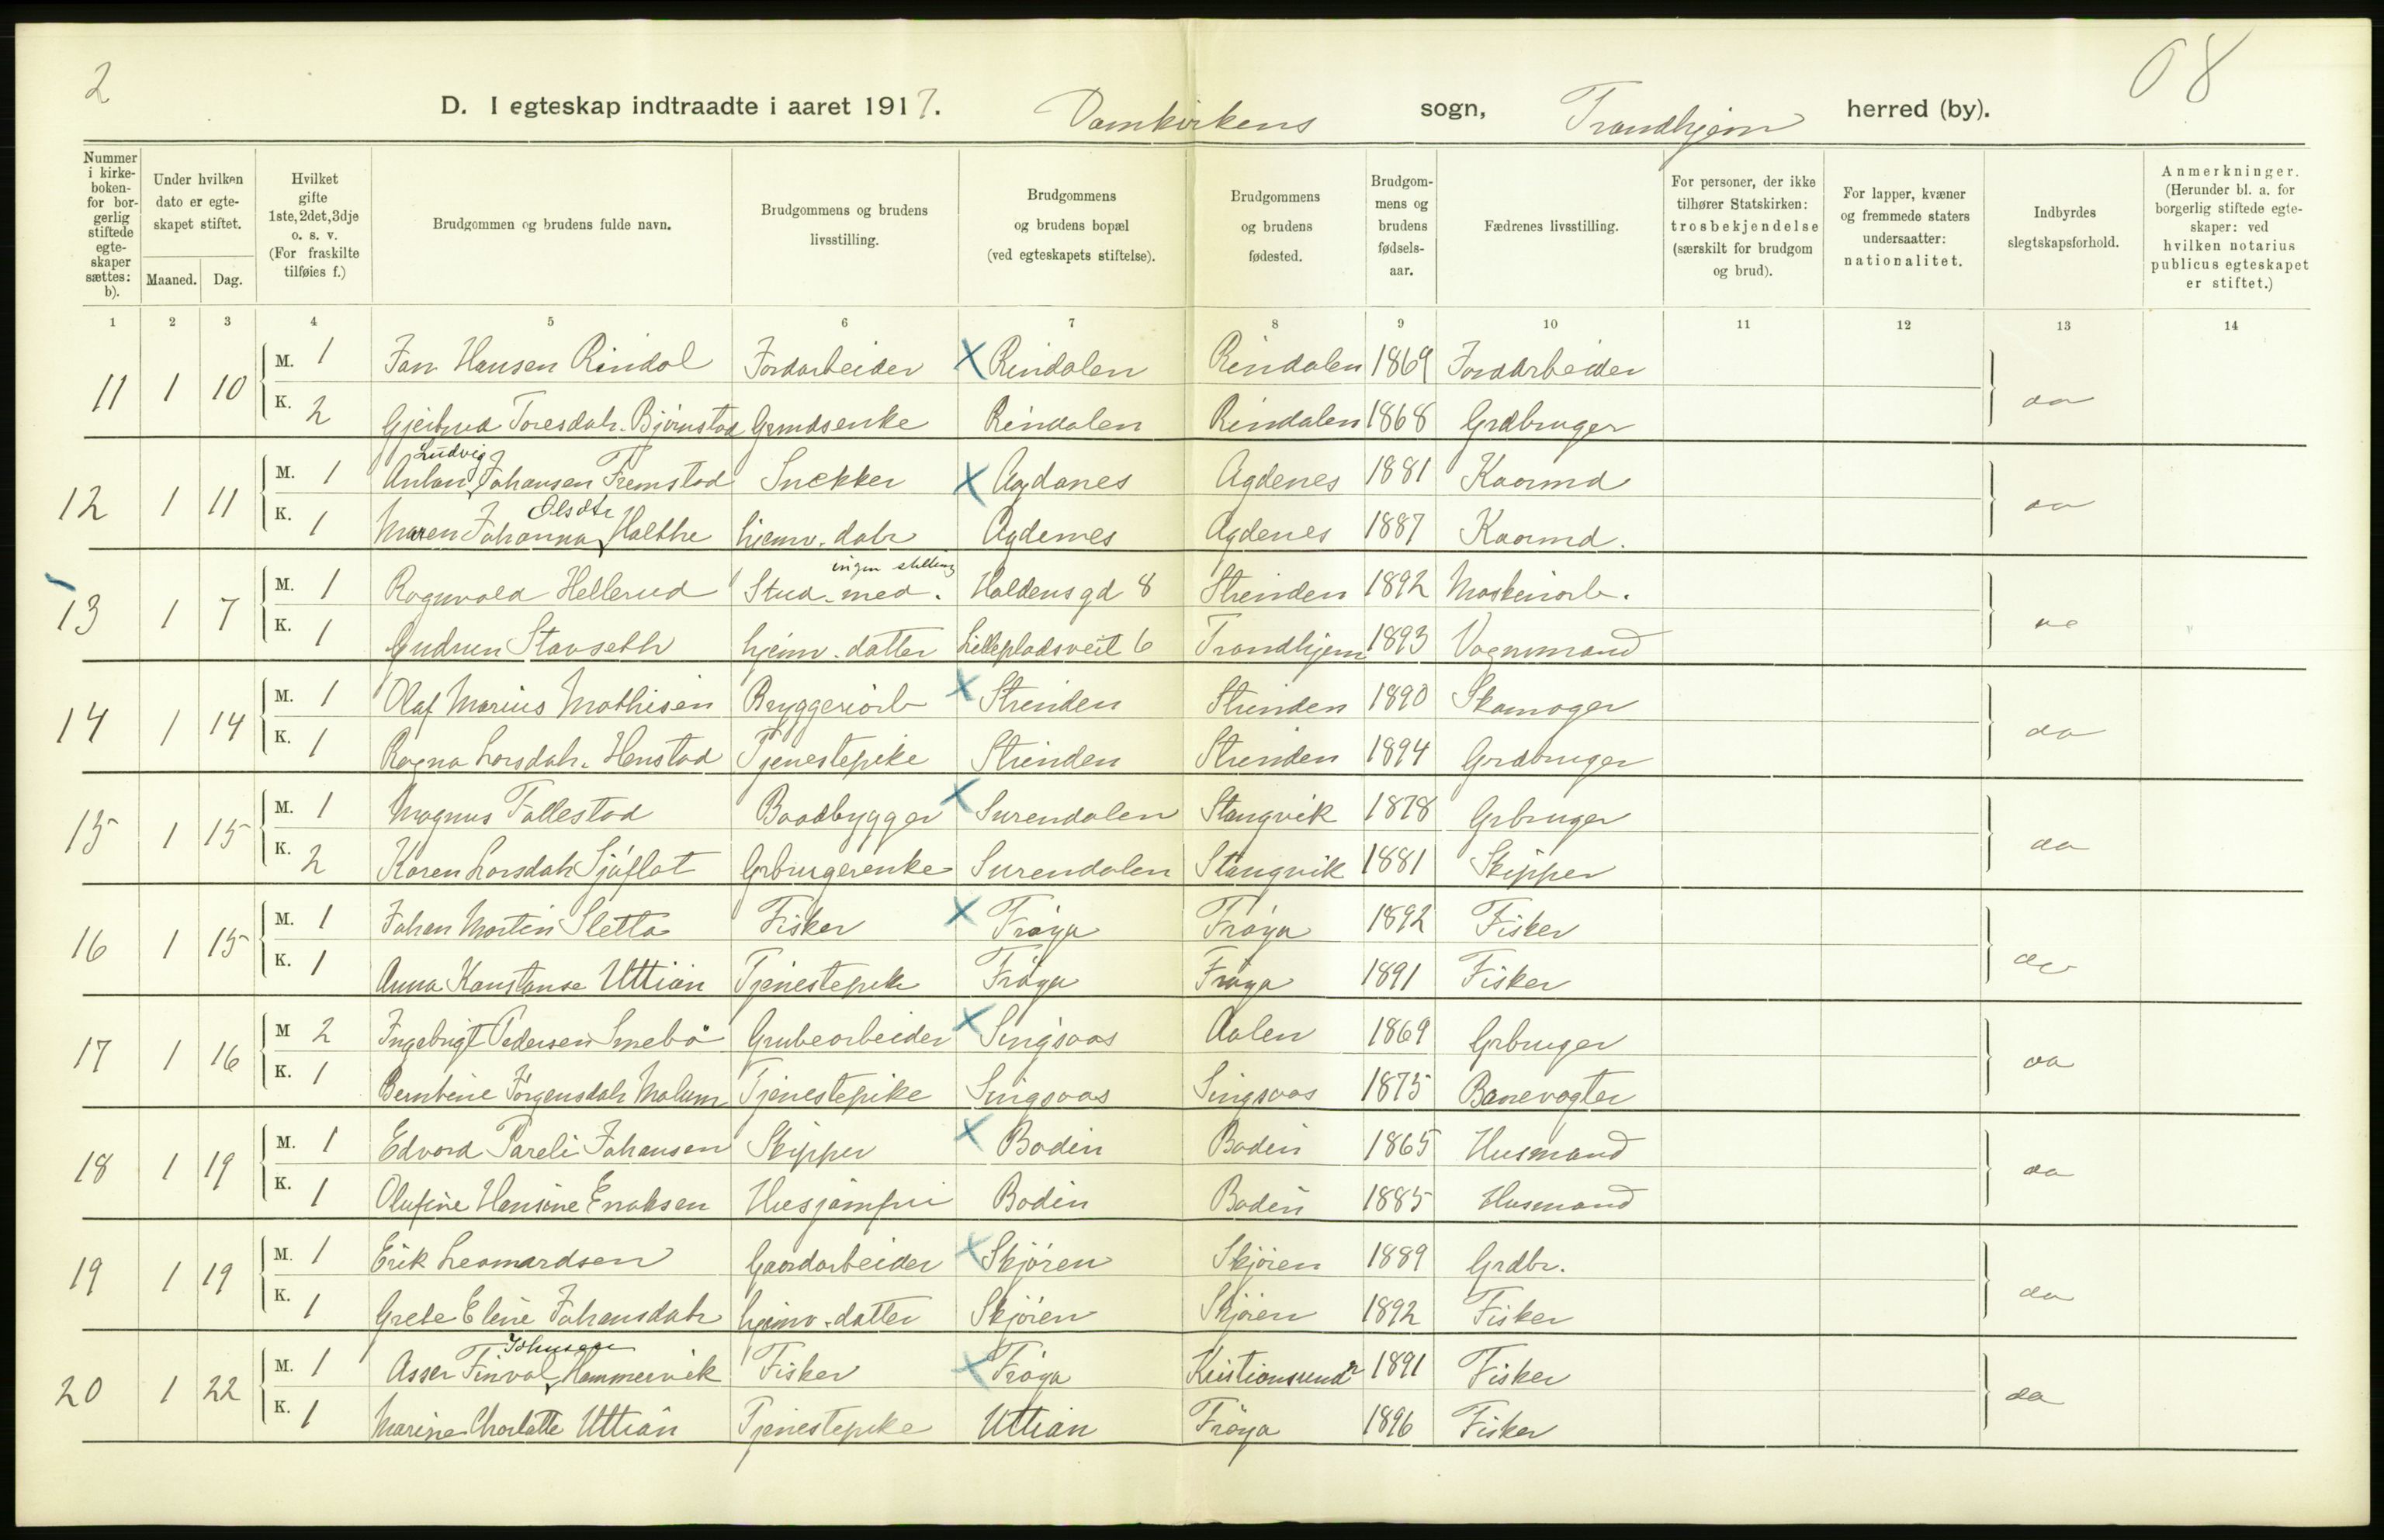 2
08
D. I egteskap indtraadte i aaret 1917. Domkirkens sogn, Trondhjem herred (by).
Nummer i kirkeboken- for borgerlig stiftede egteskaper sættes: b).
Under hvilken dato er egteskapet stiftet.
Maaned. Dag.
Hvilket gifte 1ste, 2det, 3dje o. s. v. (For fraskilte tilføies f.)
Brudgommen og brudens fulde navn.
Brudgommens og brudens livsstilling.
Brudgommens og brudens bopæl (ved egteskapets stiftelse).
Brudgommens og brudens fødested.
Brudgommens og brudens fødselsaar.
Fædrenes livsstilling.
For personer, der ikke tilhører Statskirken: trosbekjendelse (særskilt for brudgom og brud).
For lapper, kvæner og fremmede staters undersaatter: nationalitet.
Indbyrdes slegtskapsforhold.
Anmerkninger. (Herunder bl. a. for borgerlig stiftede egteskaper: ved hvilken notarius publicus egteskapet er stiftet.)
1 2 3 4 5 6 7 8 9 10 11 12 13 14
11 1 10 M. 1 Jon Hansen Rindal Jordarbeider X Rindalen Rindalen 1869 Jordarbeider
K. 2 Gjertrud Toresdatr. Bjørnstad Grmdsenke Rindalen Rindalen 1868 Grdbruger da
12 1 11 M. 1 Anton Ludvig Johansen Fremstad Snekker X Agdenes Agdenes 1881 Kaarmd
K. 1 Maren Johanna Olsdtr Holthe hjemv. datr Agdenes Agdenes 1887 Kaarmd. da
13 1 7 M. 1 Ragnvald Hellerud Stud. med. ingen stilling Haldens gd 8 Strinden 1892 Maskinarb.
K. 1 Gudrun Stavseth hjemv. datter Lillepladsveit 6 Trondhjem 1893 Vognmand
14 1 14 M. 1 Olaf Marius Mathisen Bryggeriarb X Strinden Strinden 1890 Skomager
K. 1 Ragna Larsdatr. Henstad Tjenestepike Strinden Strinden 1894 Grdbruger da
15 1 15 M. 1 Magnus Tollestad Baadbygger X Surendalen Stangvik 1878 Grbruger
K. 2 Karen Larsdatr Sjøflot Grbrugerenke Surendalen Stangvik 1881 Skipper da
16 1 15 M. 1 Johan Martin Sletta Fisker X Frøya Frøya 1892 Fisker
K. 1 Anna Konstanse Uttian Tjenestepik Frøya Frøya 1891 Fisker da
17 1 16 M 2 Ingebrigt Pedersen Smebø Grubearbeider X Singsaas Aalen 1869 Grbruger
K. 1 Berntine Jørgensdatr Malum Tjenestepike Singsaas Singsaas 1875 Banevogter da
18 1 19 M. 1 Edvard Pareli Johansen Skipper X Bodin Bodin 1865 Husmand
K. 1 Olufine Hansine Enoksen Husjomfru Bodin Bodin 1885 Husmand da
19 1 19 M. 1 Erik Leonardsen Gaardarbeider X Skjøren Skjøren 1889 Grdbr.
K. 1 Grete Eline Johansdatr hjemv. datter Skjøren Skjøren 1892 Fisker da
20 1 22 M. 1 Asser Finval Johnsen Hammervik Fisker X Frøya Kristiansund N 1891 Fisker
K. 1 Marine Charlotte Uttian Tjenestepike Uttian Frøya 1896 Fisker da